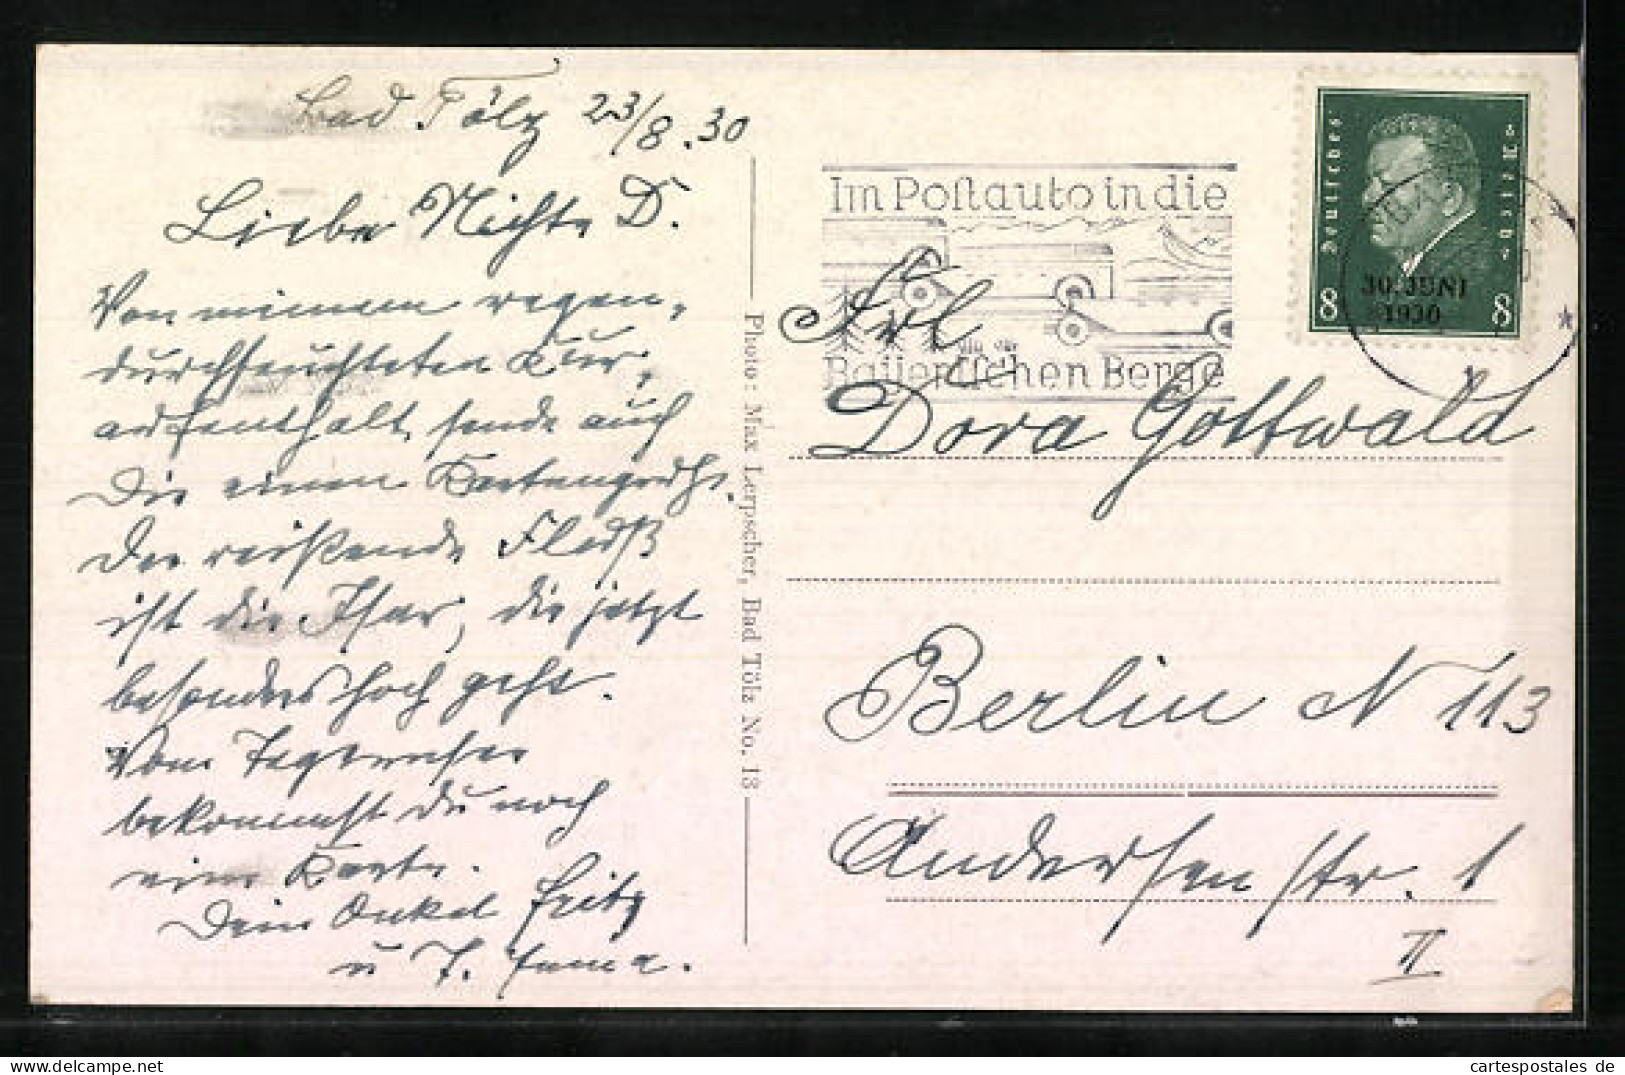 Bad Tölz 23/8.30
Liebe Nichte D.
Von meinem regen-
durchfeuchteten Kur-
aufenthalt sende auch
Dir einen Kartengruß.
Der reißende Fluß
ist die Isar, die jetzt
besonders hoch geht.
Vom Tegernsee
bekommst du noch
eine Karte.
Dein Onkel Fritz
u T. Emma.
Photo: Max Lerpscher, Bad Tölz No. 13
Im Postauto in die
Bayerischen Berge
Deutsches Reich
30. JUNI
1930
8 8
Frl
Dora Gottwald
Berlin N 113
Andersenstr. 1
II
cartespostales de